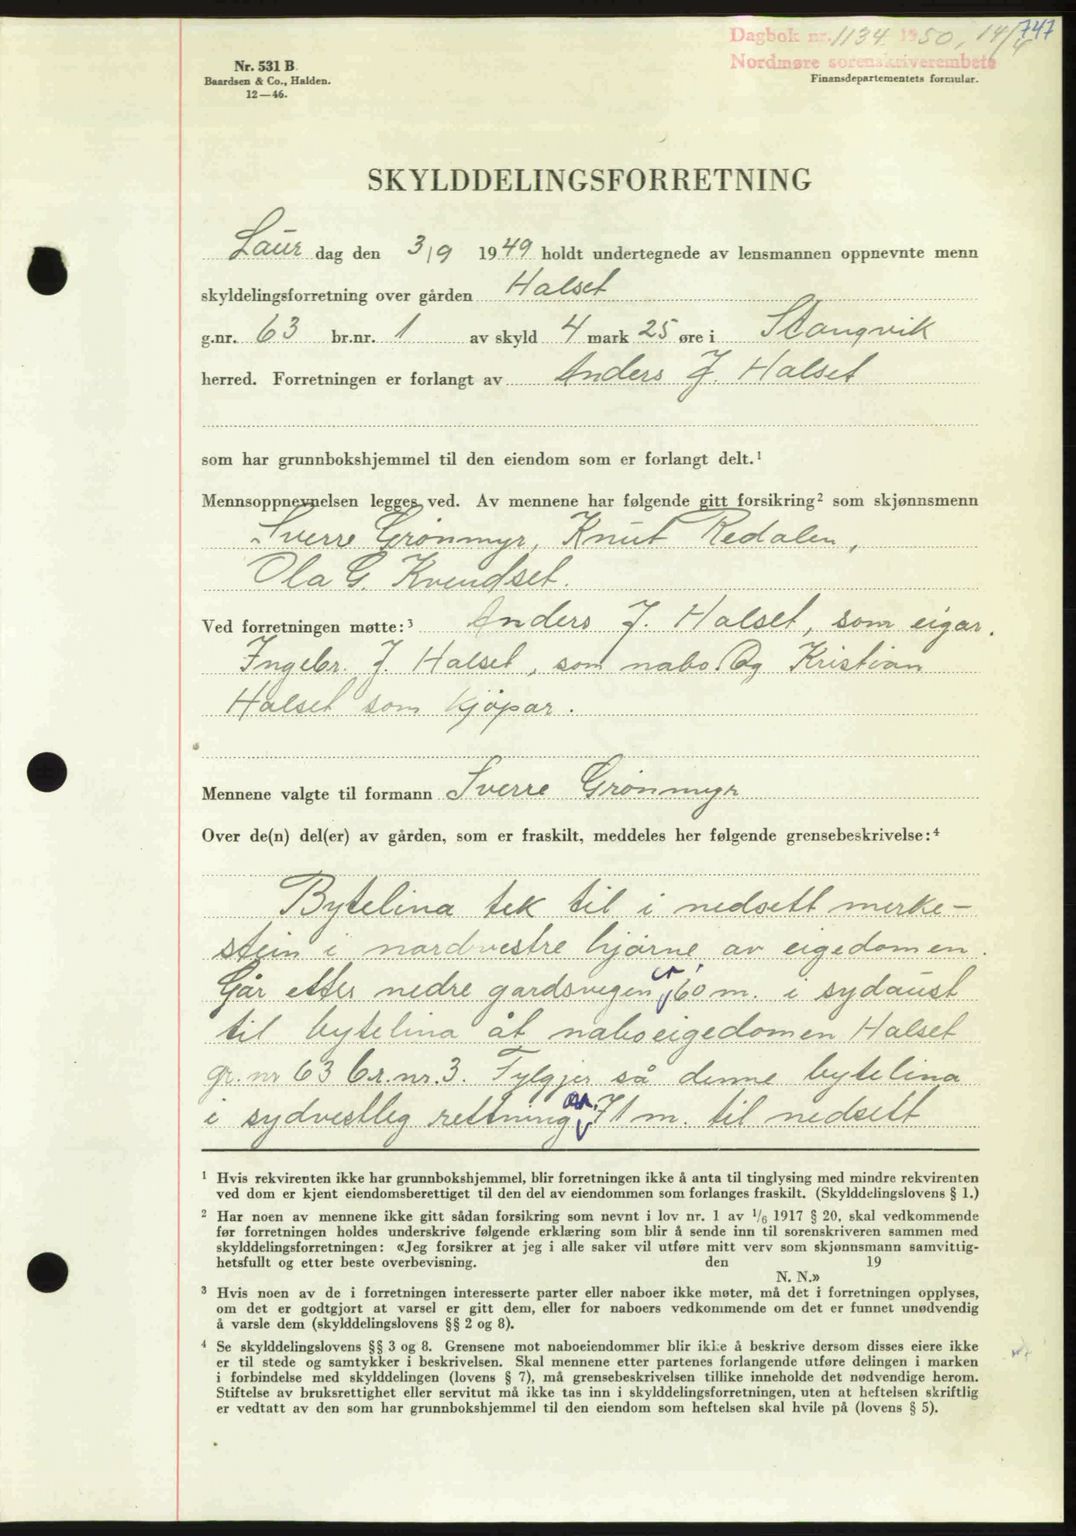 747
Dagbok nr. 1134 1950, 14/4
Nordmøre sorenskriverembete
Nr. 531 B
Baardsen & Co., Halden.
12—46.
Finansdepartementets formular.
SKYLDDELINGSFORRETNING
Laur dag den 3/9 1949 holdt undertegnede av lensmannen oppnevnte menn
skyldelingsforretning over gården Halset
g.nr. 63 br.nr. 1 av skyld 4 mark 25 øre i Stangvik
herred. Forretningen er forlangt av Anders J. Halset
som har grunnbokshjemmel til den eiendom som er forlangt delt.¹
Mennsoppnevnelsen legges ved. Av mennene har følgende gitt forsikring² som skjønnsmenn
Sverre Grønmyr, Knut Redalen,
Ola G. Kvendset.
Ved forretningen møtte:³ Anders J. Halset, som eigar.
Ingebr. J. Halset, som nabo. Og Kristian
Halset som kjøpar.
Mennene valgte til formann Sverre Grønmyr
Over de(n) del(er) av gården, som er fraskilt, meddeles her følgende grensebeskrivelse:⁴
Bytelina tek til i nedsett merke-
stein i nordvestre hjørne av eigedomen.
Går etter nedre gardsvegen 60 m. i sydaust
til bytelina åt naboeigedomen Halset
gr. nr 63 br. nr. 3. Fylgjer så denne bytelina
i sydvestleg rettning 71 m. til nedsett
¹ Hvis rekvirenten ikke har grunnbokshjemmel, blir forretningen ikke å anta til tinglysing med mindre rekvirenten
ved dom er kjent eiendomsberettiget til den del av eiendommen som forlanges fraskilt. (Skylddelingslovens § 1.)
² Har noen av mennene ikke gitt sådan forsikring som nevnt i lov nr. 1 av 1/6 1917 § 20, skal vedkommende
før forretningen holdes underskrive følgende erklæring som blir å sende inn til sorenskriveren sammen med
skylddelingsforretningen: «Jeg forsikrer at jeg i alle saker vil utføre mitt verv som skjønnsmann samvittig-
hetsfullt og etter beste overbevisning. den 19
N. N.»
³ Hvis noen av de i forretningen interesserte parter eller naboer ikke møter, må det i forretningen opplyses,
om det er godtgjort at varsel er gitt dem, eller for naboers vedkommende om det er funnet unødvendig
å varsle dem (skylddelingslovens §§ 2 og 8).
⁴ Se skylddelingslovens §§ 3 og 8. Grensene mot naboeiendommer blir ikke å beskrive dersom disses eiere ikke
er til stede og samtykker i beskrivelsen. Skal mennene etter partenes forlangende utføre delingen i marken
i forbindelse med skylddelingen (lovens § 7), må grensebeskrivelsen tillike inneholde det nødvendige herom.
Stiftelse av bruksrettighet eller servitut må ikke tas inn i skylddelingsforretningen, uten at heftelsen skriftlig
er vedtatt av den som har grunnbokshjemmel til den eiendom som heftelsen skal hvile på (lovens § 5).